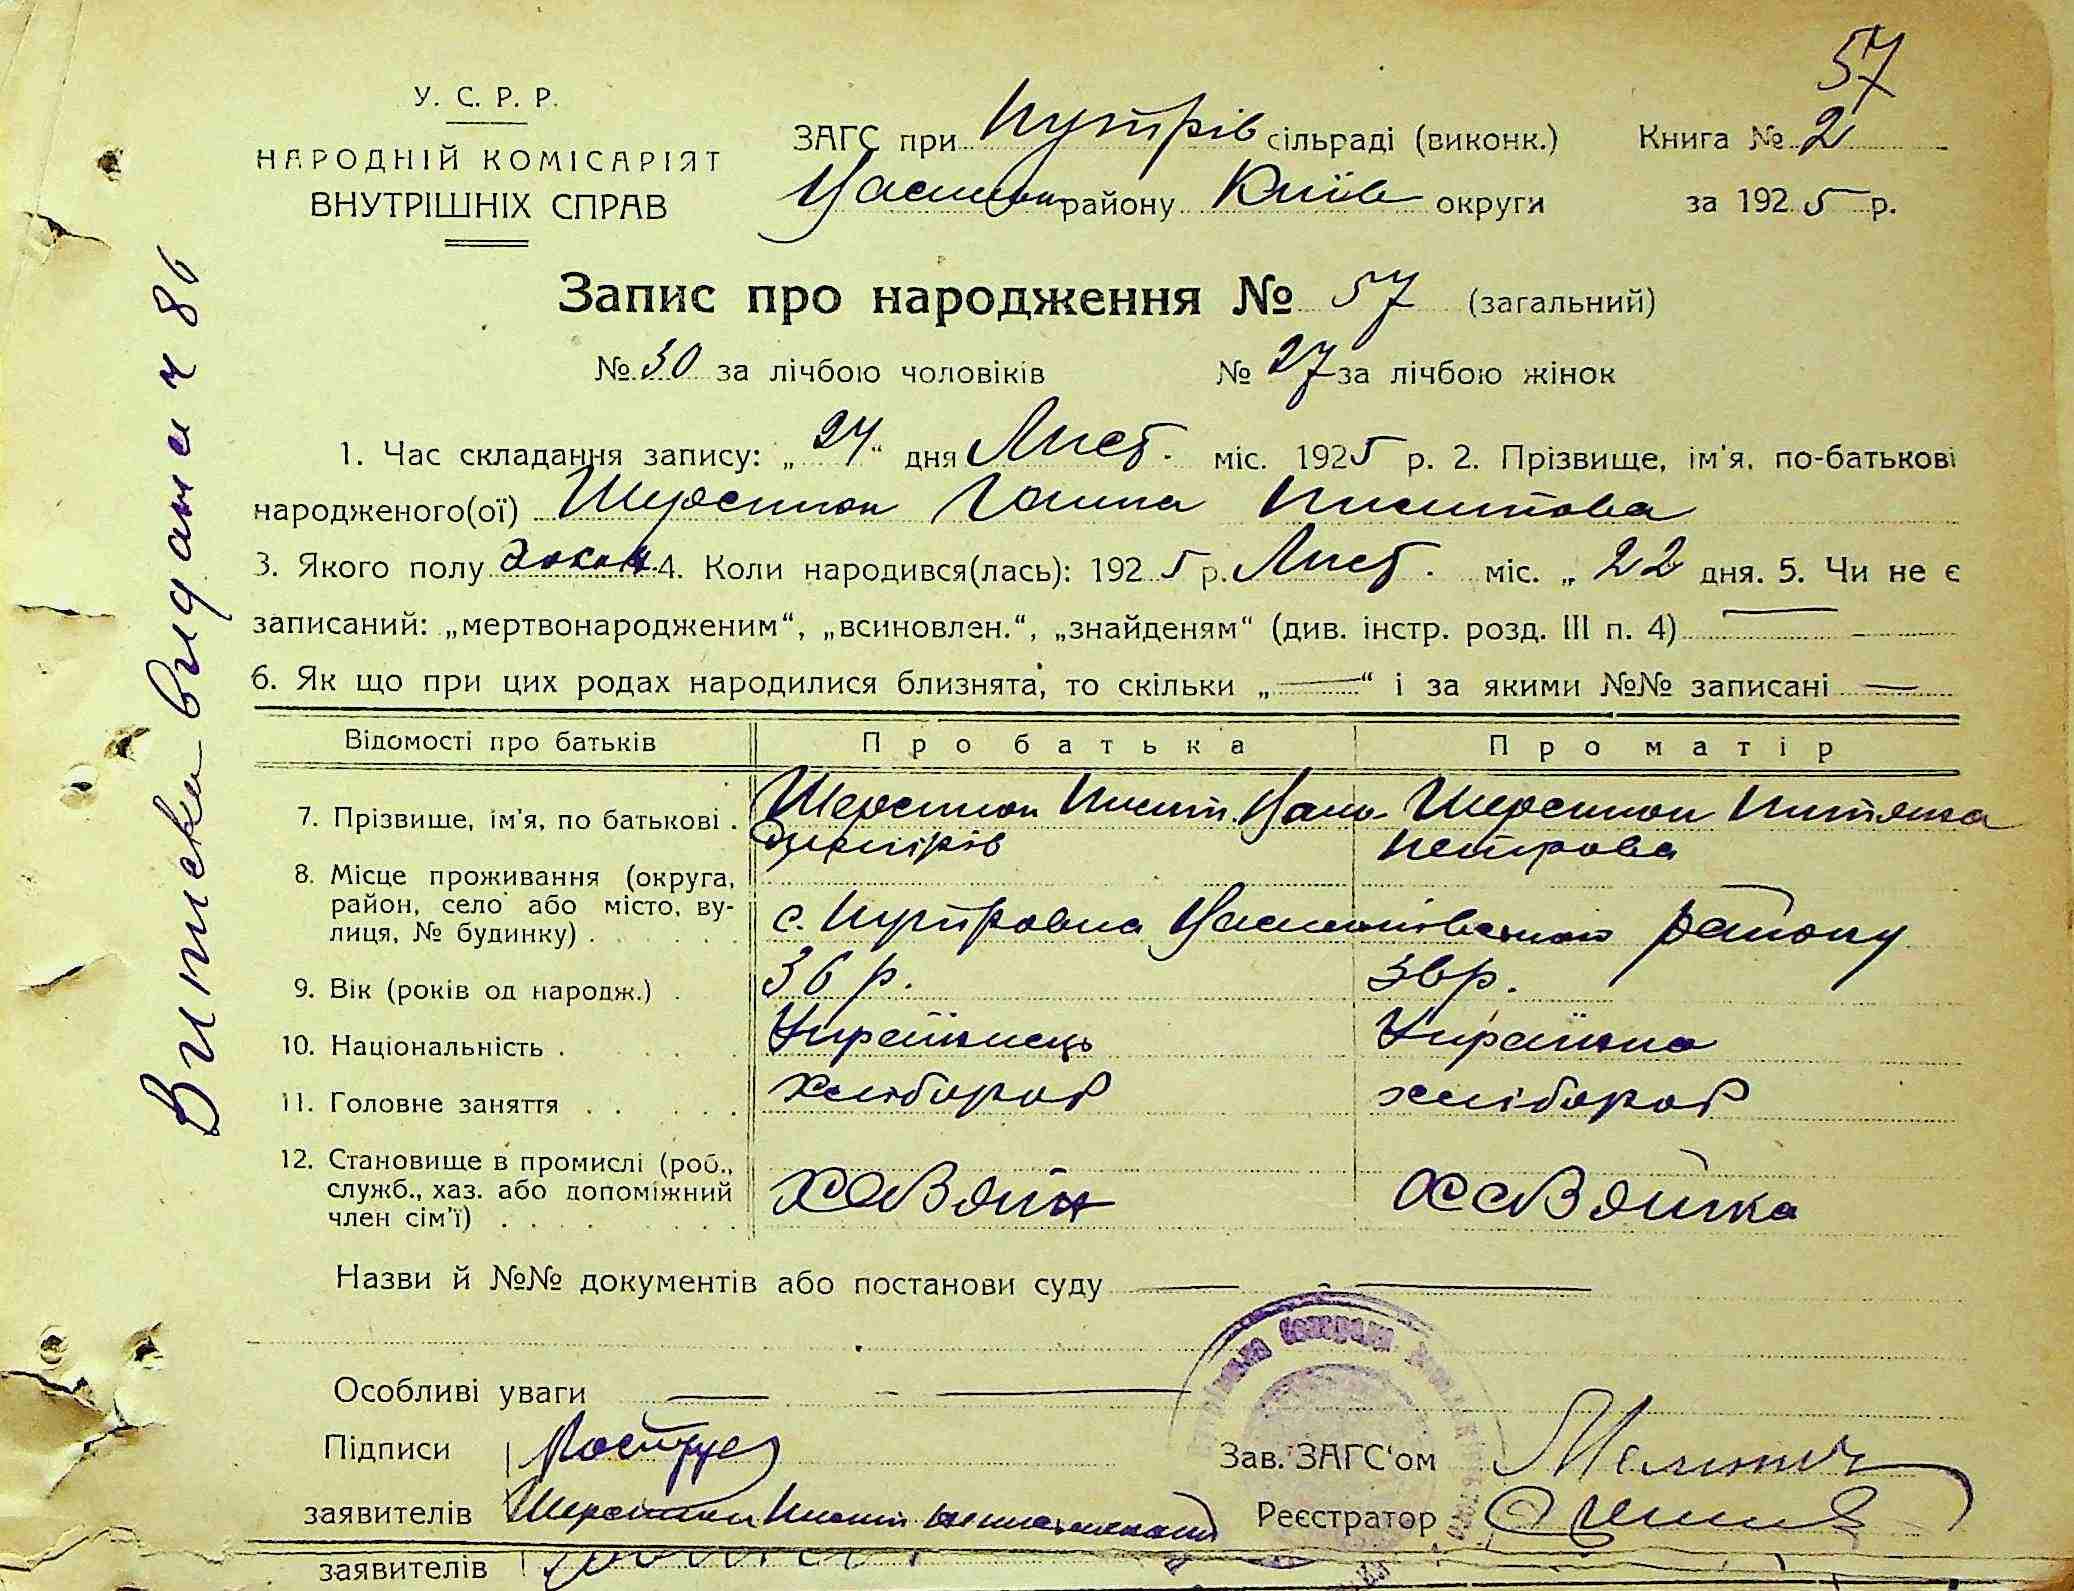 57
У. С. Р. Р.
НАРОДНІЙ КОМІСАРІЯТ
ВНУТРІШНІХ СПРАВ
ЗАГС при Путрів сільраді (виконк.) Книга № 2
району Київ округи за 1925 р.
Запис про народження № 57 (загальний)
№ 30 за лічбою чоловіків № 27 за лічбою жінок
1. Час складання запису: „24“ дня Лист. міс. 1925 р. 2. Прізвище, ім'я, по-батькові
народженого(ої) Ганна
3. Якого полу 4. Коли народився(лась): 1925 р. Лист. міс. „22 дня. 5. Чи не є
записаний: „мертвонародженим“, „всиновлен.“, „знайденям“ (див. інстр. розд. III п. 4)
6. Як що при цих родах народилися близнята, то скільки „—“ і за якими №№ записані —
Відомості про батьків Про батька Про матір
7. Прізвище, ім'я, по батькові .
Петрова
8. Місце проживання (округа,
район, село або місто, ву-
лиця, № будинку) . с. Путровка району
9. Вік (років од народж.) . 36 р. 36 р.
10. Національність . Українець Українка
11. Головне заняття . хлібороб хлібороб
12. Становище в промислі (роб.,
служб., хаз. або допоміжний
член сім'ї) . хазяїн хазяйка
Назви й №№ документів або постанови суду
Особливі уваги
Підписи Зав. ЗАГС'ом
заявителів Реєстратор
заявителів
Виписка видана